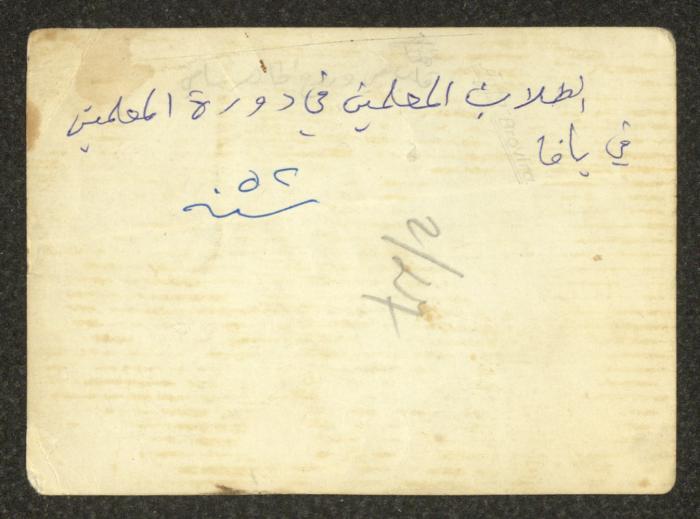 الطلاب المعلمين في دورة المعلمين
في يافا
سنة ٥٢
2/27